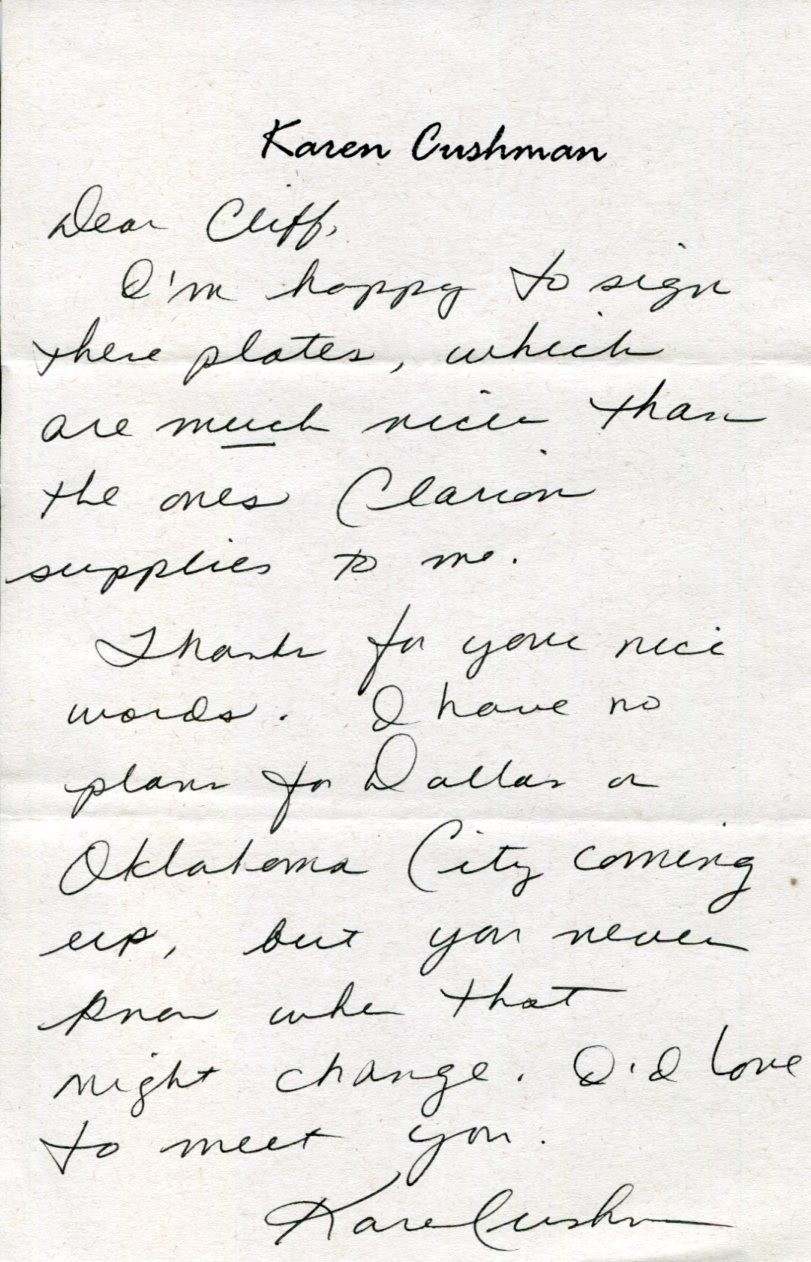 Karen Cushman
Dear Cliff,
I'm happy to sign
these plates, which
are much nicer than
the ones Clarion
supplies to me.
Thanks for your nice
words. I have no
plans for Dallas or
Oklahoma City coming
up, but you never
know when that
might change. I'd love
to meet you.
Karen Cushman